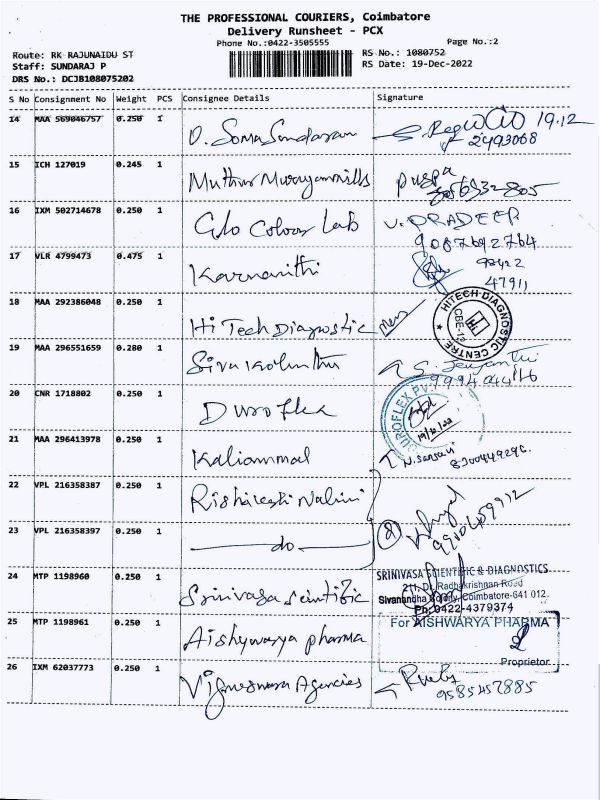 THE PROFESSIONAL COURIERS, Coimbatore
Delivery Runsheet - PCX
Phone No.:0422-3505555
Page No.:2
Route: RK RAJUNAIDU ST
RS No.: 1080752
Staff: SUNDARAJ P
RS Date: 19-Dec-2022
DRS No.: DCJB108075202
S No Consignment No Weight PCS Consignee Details Signature
14 MAA 569046757 0.250 1 O. Soma Sundaram 19.12
2493068
15 ICH 127019 0.245 1 Muthur Murugan mills puspa
16 IXM 502714678 0.250 1 Glo Colour Lab V. PRADEEP
9087692764
17 VLR 4799473 0.475 1 Karnanithi
47911
18 MAA 292386048 0.250 1 Hi Tech Diagnostic
HITECH DIAGNOSTIC CENTRE
CBE-12
19 MAA 296551659 0.280 1 Siva kolunthu S. Jeyanthi
20 CNR 1718802 0.250 1 Duroflex
DUROFLEX PVT
19/12/22
21 MAA 296413978 0.250 1 Kaliammal
22 VPL 216358387 0.250 1 Rishikesh Nalini
23 VPL 216358397 0.250 1 do
24 MTP 1198960 0.250 1 Srinivasa Scintific
SRINIVASA SCIENTIFIC & DIAGNOSTICS
Radhakrishnan Road
Coimbatore-641 012.
Ph: 0422-4379374
25 MTP 1198961 0.250 1 Aishywarya pharma
For AISHWARYA PHARMA
Proprietor
26 IXM 62037773 0.250 1 Vigneswara Agencies Ruby
9585457885